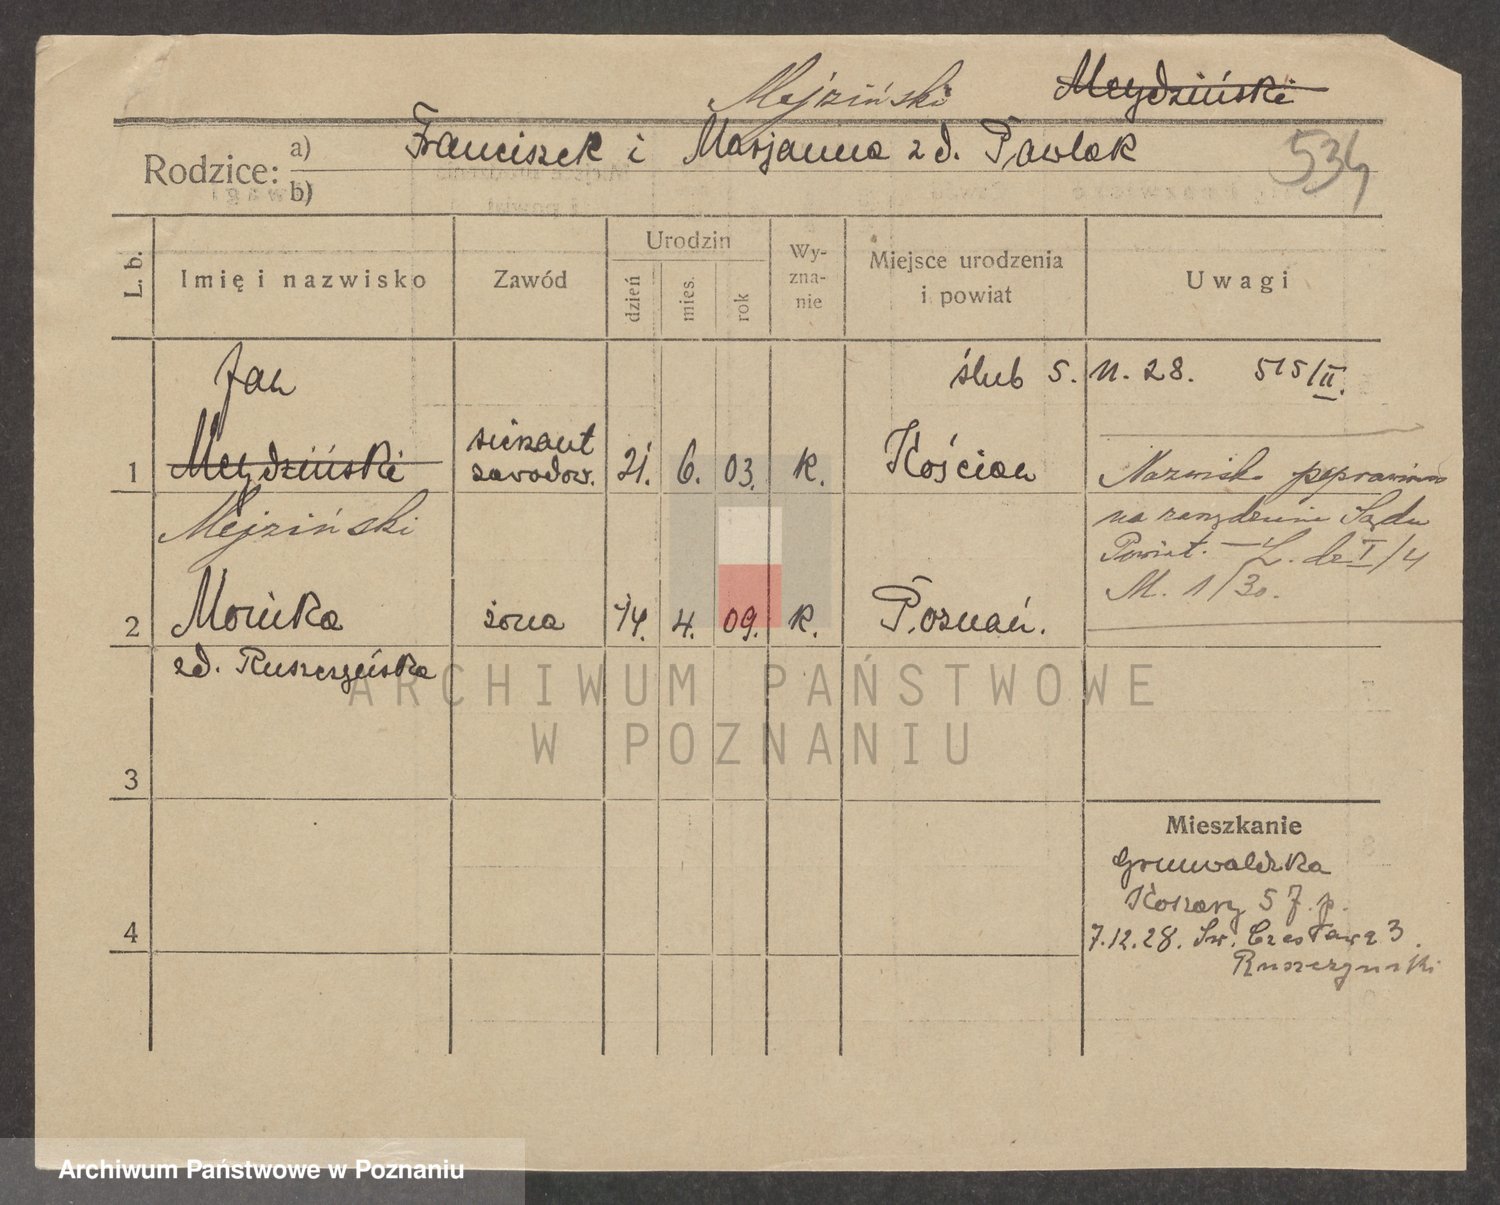 Mejziński Meydziński
Rodzice: a) Franciszek i Marjanna zd. Pawlak 534
b)
L. b. Imię i nazwisko Zawód Urodzin dzień mies. rok Wyznanie Miejsce urodzenia i powiat Uwagi
Jan ślub 5. 11. 28. 515/II.
1 Meydziński sierżant zawodow. 21. 6. 03. k. Kościan
Mejziński
Nazwisko
na Sądu
Powiat. I/4
M. 1/30.
2 Monika żona 14. 4. 09. k. Poznań.
zd. Ruszczyńska
3
4
Mieszkanie
Grunwaldzka
Koszary 57 p.
7.12.28. Św. Czesława 3.
Ruszczyński
ARCHIWUM PAŃSTWOWE
W POZNANIU
Archiwum Państwowe w Poznaniu